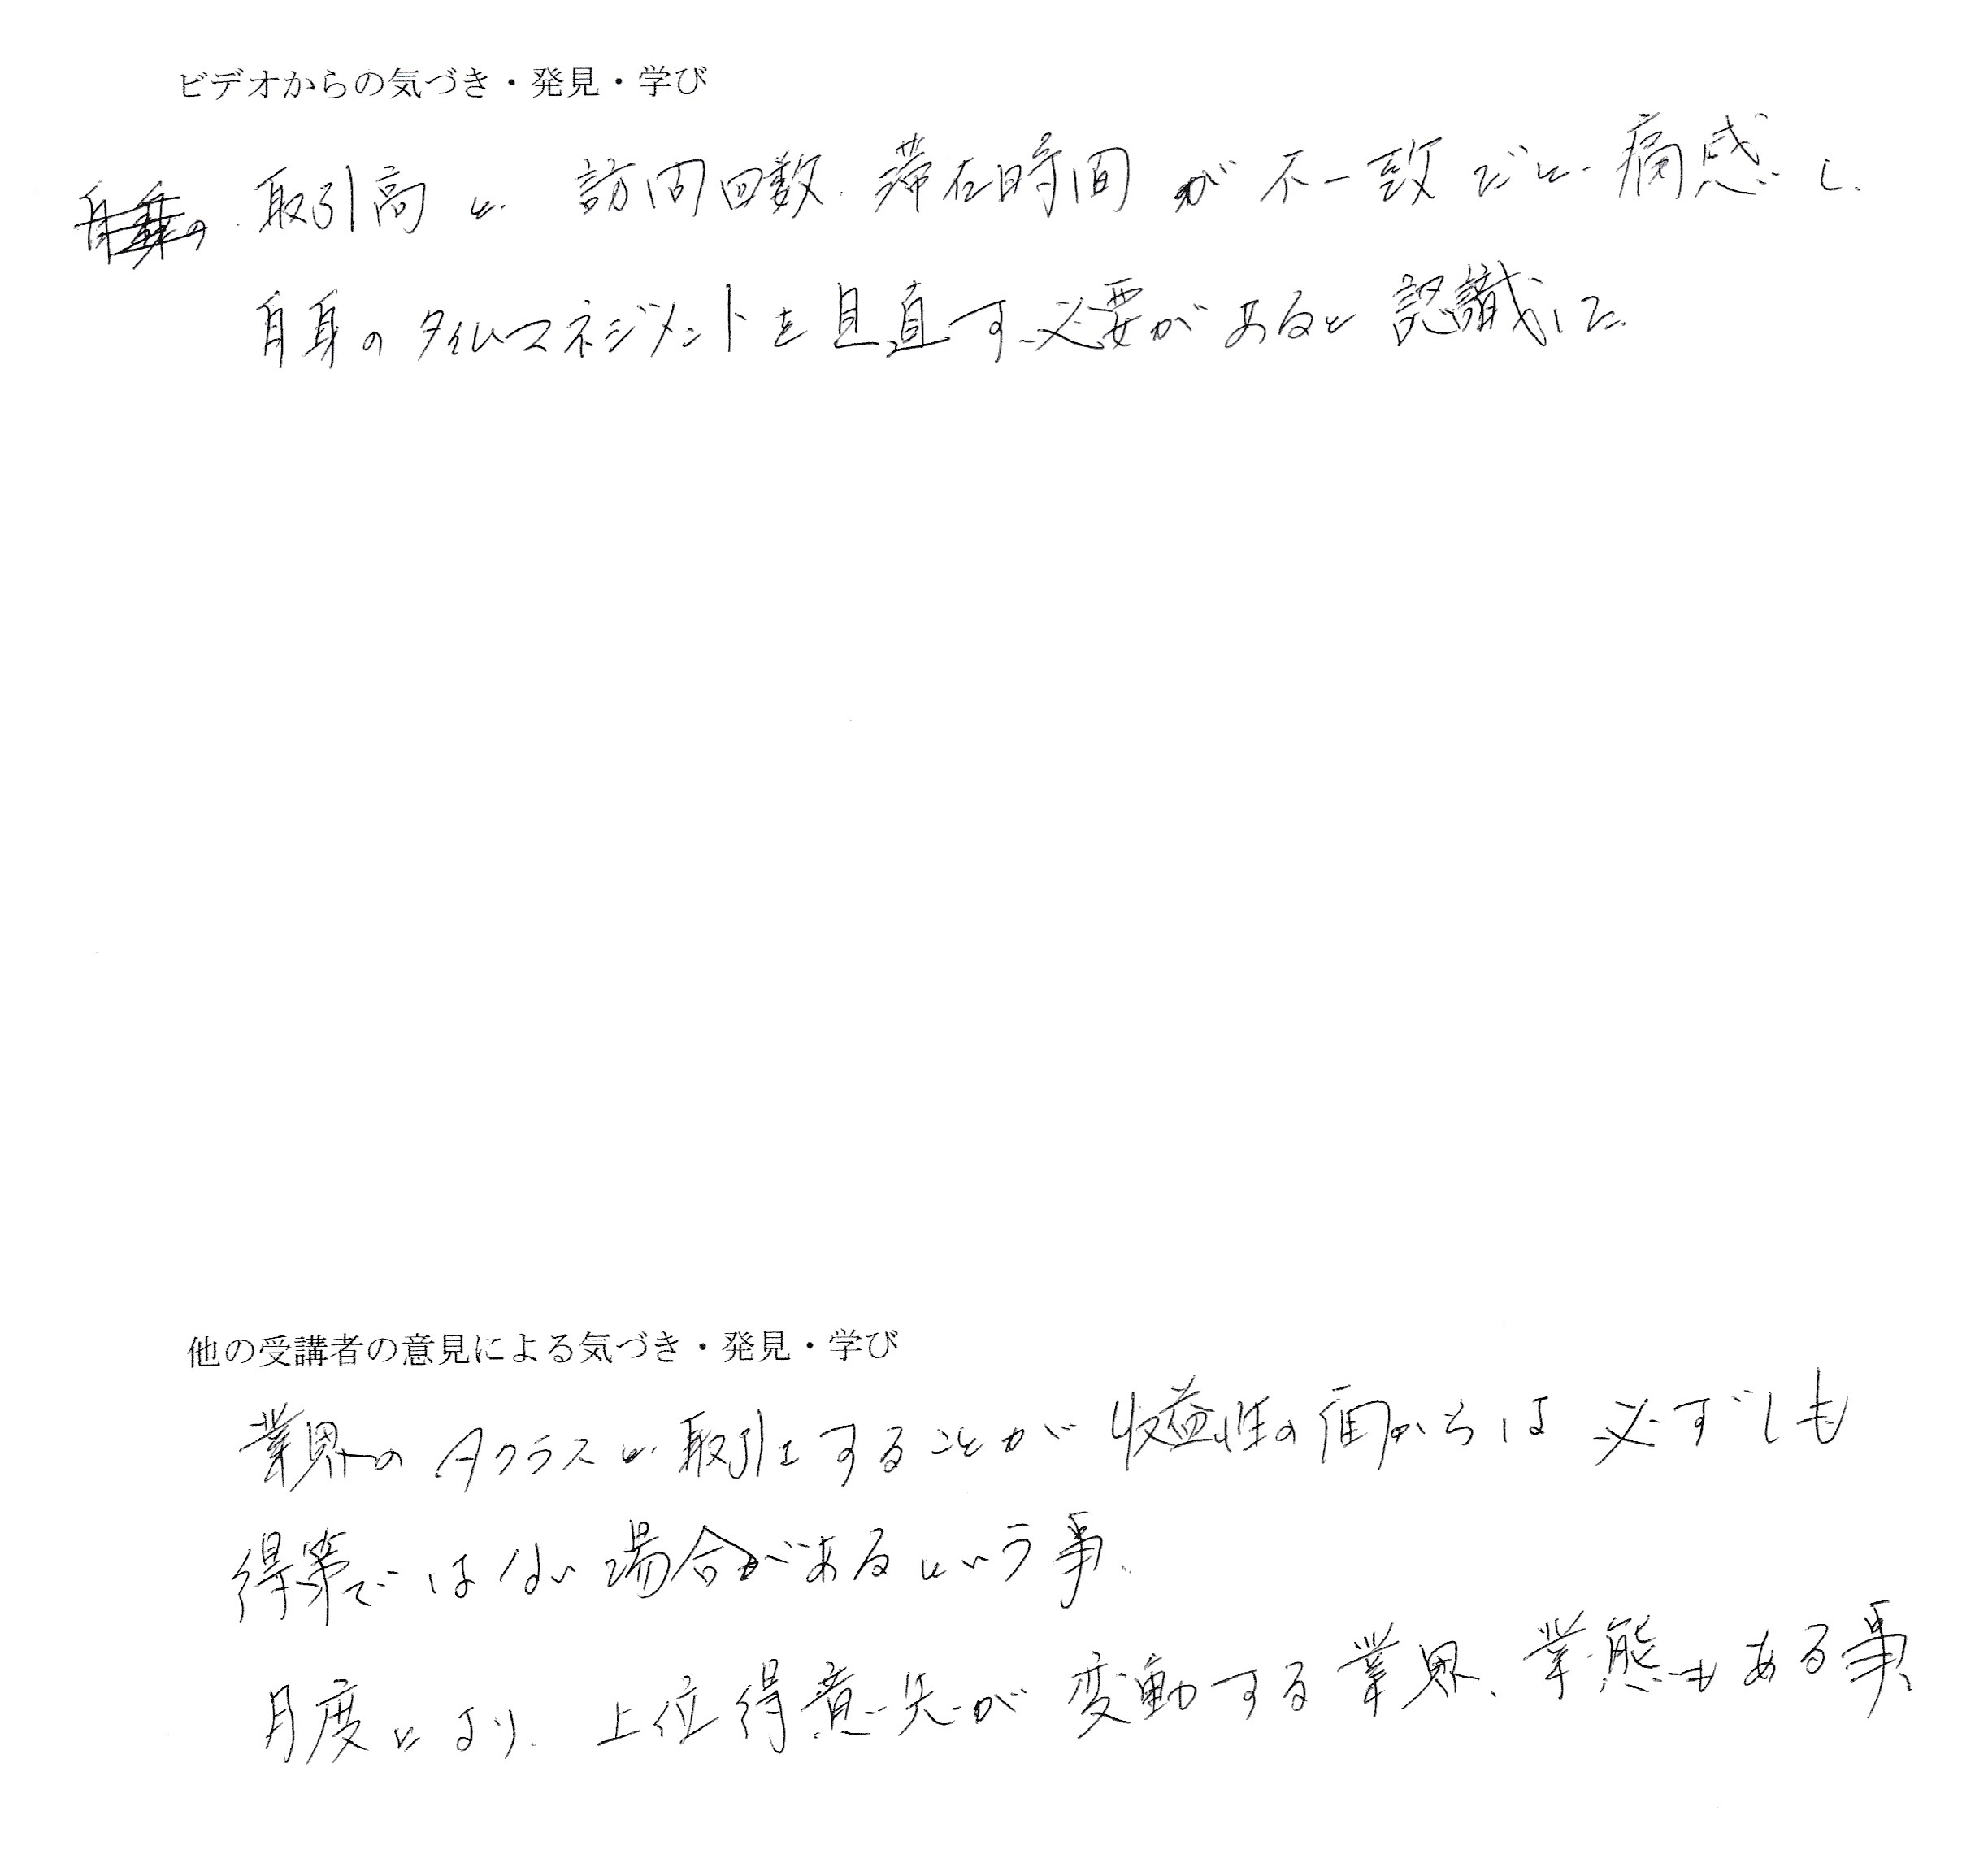 ビデオからの気づき・発見・学び
取引高と訪問回数、滞在時間が不一致だと痛感し、
自身のタイムマネジメントを見直す必要があると認識した。
他の受講者の意見による気づき・発見・学び
業界のAクラスと取引をすることが収益性の面からは必ずしも
得策ではない場合があるという事。
月度により、上位得意先が変動する業界、業態もある事